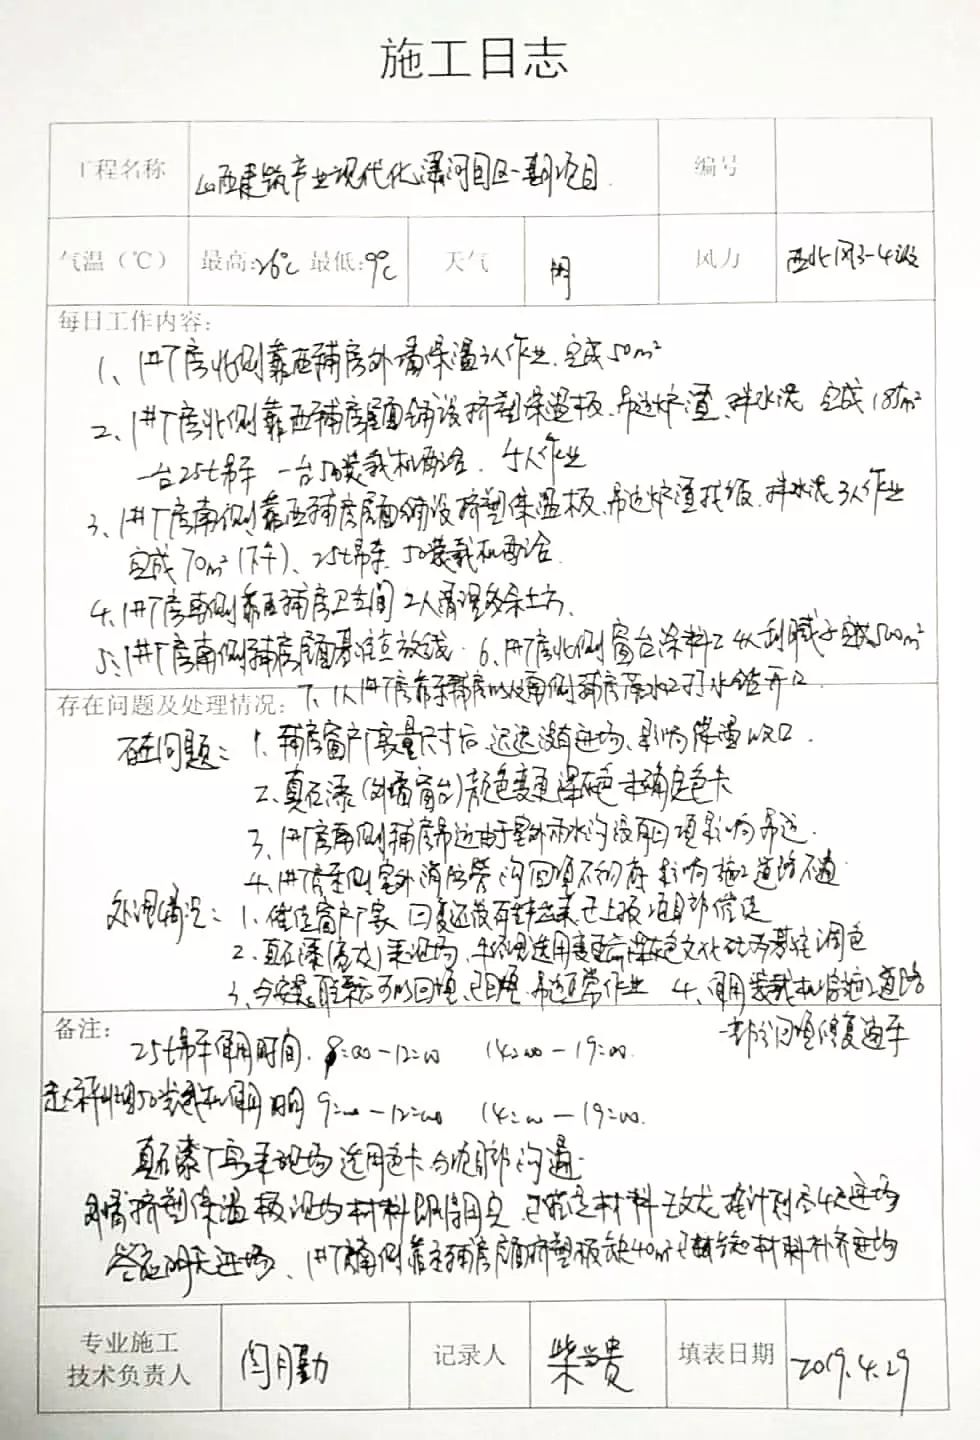 施工日志
工程名称 山西建筑产业现代化潇河园区一期项目 编号
气温（℃） 最高:26℃ 最低:9℃ 天气 阴 风力 西北风3-4级
每日工作内容:
1、1#厂房北侧靠西辅房外墙保温3人作业，完成50m²
2、1#厂房北侧靠西辅房屋面铺设挤塑保温板、吊运炉渣、拌水泥 完成185m²
一台25t吊车 一台50装载机配合. 5人作业
3、1#厂房南侧靠西辅房屋面铺设挤塑保温板、吊运炉渣找坡、拌水泥3人作业
完成70m²(下午)、25t吊车、50装载机配合
4、1#厂房南侧靠西辅房卫生间2人清理多余土方、
5、1#厂房南侧辅房屋面基准点放线. 6、1#厂房北侧窗台涂料工4人刮腻子完成500m²
7、1人1#厂房靠东辅房以及南侧辅房落水口打水钻开口
存在问题及处理情况:
存在问题: 1、辅房窗户厂家量尺寸后，迟迟没有进场、影响保温收口.
2、真石漆(外墙窗台)颜色变更深灰色未确定色卡
3、1#厂房南侧辅房吊运由于室外雨水沟没有回填影响吊运.
4、1#厂房东侧室外消防管沟回填不彻底影响施工道路不通
处理情况: 1、催促窗户厂家、回复还没有 已上报项目部催促
2、真石漆 来现场, 选用变更 深灰色文化砖为基准调色
3、今 可以回填、已回填、吊运正常作业 4、使用装载机给施工道路
一部分回填修复通车
备注:
25t吊车使用时间. 8:00-12:00 14:00-19:00.
50装载机使用时间 9:00-12:00 14:00-19:00.
真石漆厂家来现场选用色卡与项目部沟通.
外墙挤塑保温板现场材料即将用完 材料 计划 4天进场
明天进场、1#厂房南侧靠 辅房屋面挤塑板缺40m² 材料补齐进场
专业施工
技术负责人 闫月勤 记录人 柴当贵 填表日期 2019.4.29